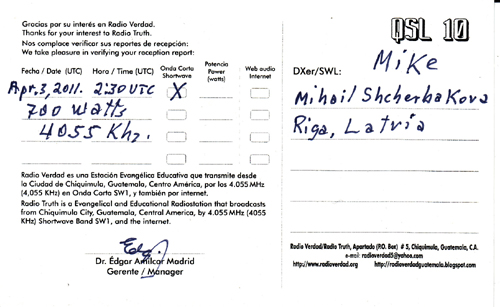 Gracias por su interés en Radio Verdad.
Thanks for your interest to Radio Truth.
Nos complace verificar sus reportes de recepción:
We have pleasure in verifying your reception report:
Fecha / Date (UTC) Hora / Time (UTC) Onda Corta Shortwave Potencia Power (watts) Web audio Internet
Apr. 3, 2011. 2:30 UTC X
700 Watts
4055 Khz.
Radio Verdad es una Estación Evangélica Educativa que transmite desde
la Ciudad de Chiquimula, Guatemala, Centro América, por los 4.055 MHz
(4,055 KHz) en Onda Corta SW1, y también por internet.
Radio Truth is a Evangelical and Educational Radiostation that broadcasts
from Chiquimula City, Guatemala, Central America, by 4.055 MHz (4055
KHz) Shortwave Band SW1, and the internet.
Dr. Édgar Amílcar Madrid
Gerente / Manager
QSL 10
DXer/SWL: Mike
Mihail Shcherbakova
Riga, Latvia
Radio Verdad/Radio Truth, Apartado (P.O. Box) # 5, Chiquimula, Guatemala, C.A.
e-mail: radioverdad5@yahoo.com
http://www.radioverdad.org http://radioverdadguatemala.blogspot.com